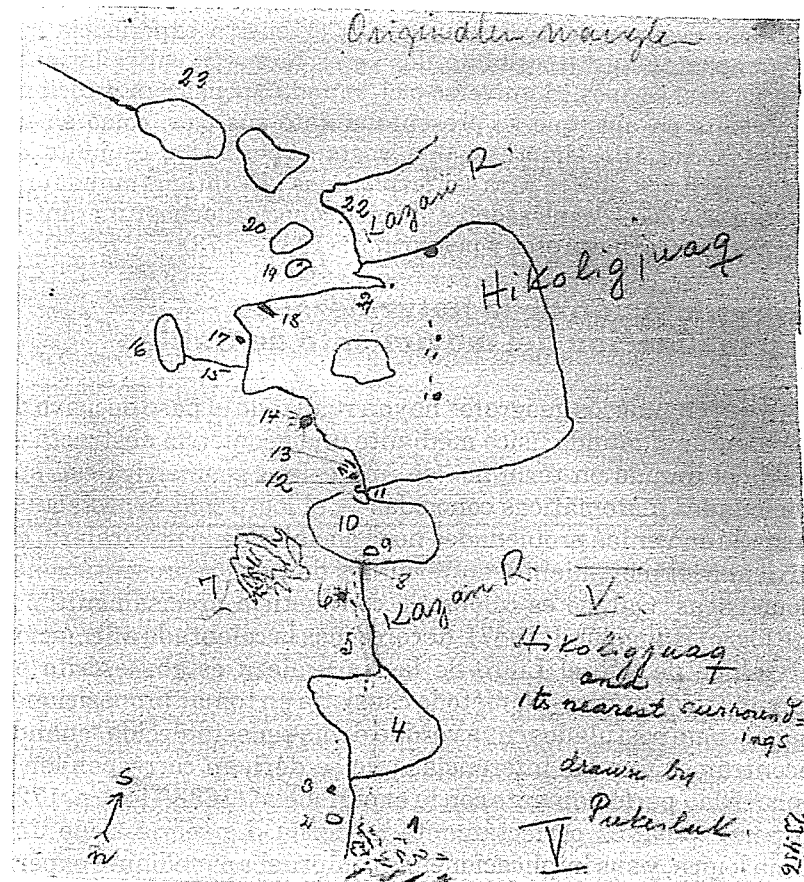 Originalen mangler
23
22
Kazan R.
20
19
Hikoligjuaq
21
18
17
16
15
14
13
12
11
10
9
8
7
6
Kazan R.
5
V.
Hikoligjuaq
and
its nearest surround=
ings
4
drawn by
Pukerluk.
3
2
1
S
N
V